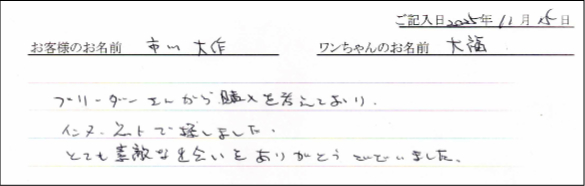 ご記入日2025年11月25日
お客様のお名前 市川 大作 ワンちゃんのお名前 大福
ブリーダーさんから購入を考えており、
インターネットで探しました。
とても素敵な出会いをありがとうございました。